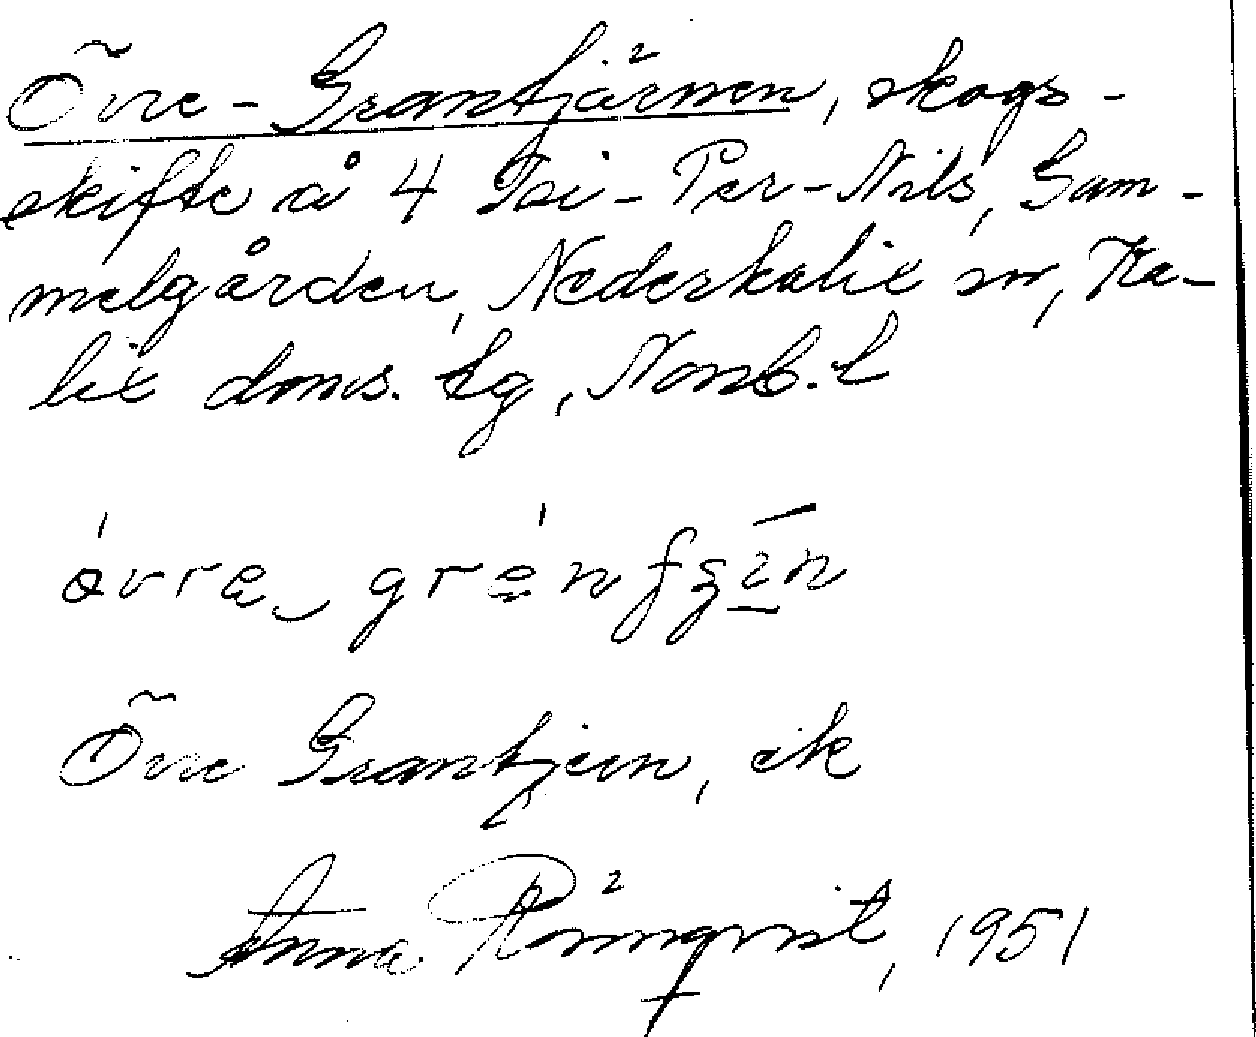 Övre-Grantjärnen, skogs-
skifte å 4 Toi-Per-Nils, Gam-
melgården, Nederkalix sn, Ka-
lix doms. tg, Nonb. l
Övre Grantjern, ek
Anna Rönnqvist, 1951